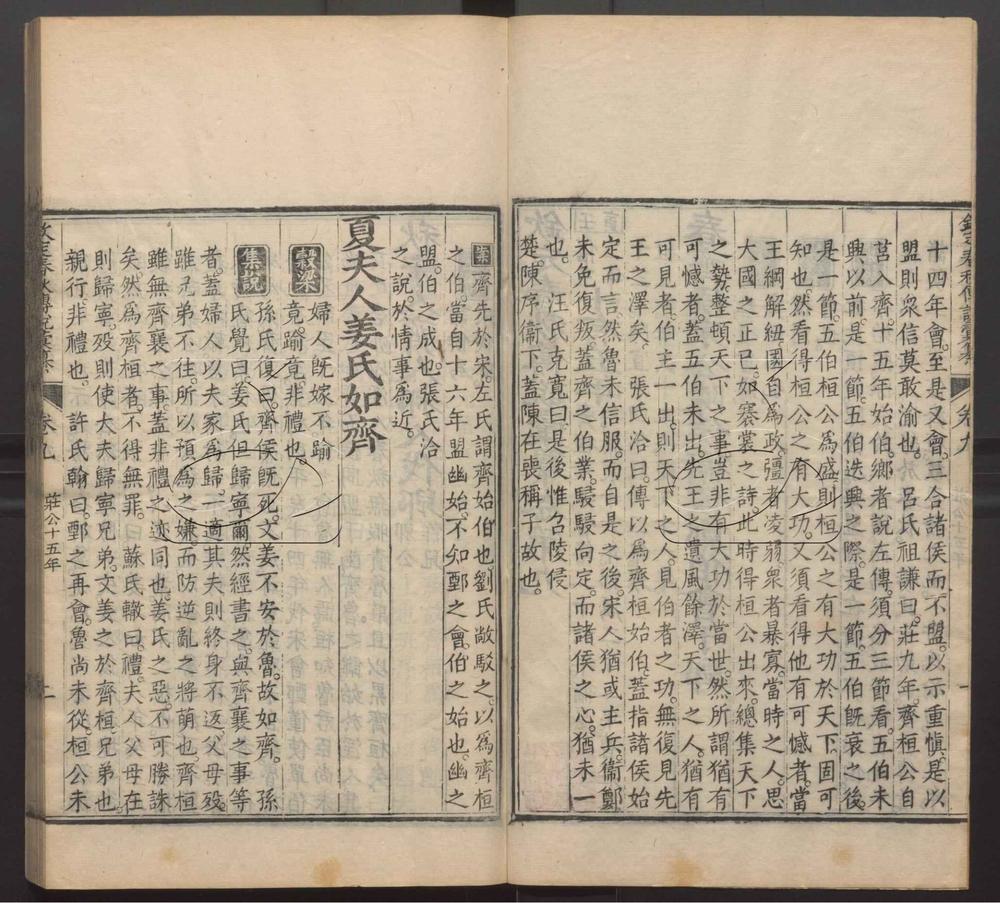 十四年會。至是又會。三合諸侯而不盟。以示重愼。是以
盟則衆信莫敢渝也。　呂氏祖謙曰。莊九年。齊桓公自
莒入齊。十五年始伯。鄉者說左傳。須分三節看。五伯未
興以前。是一節。五伯迭興之際。是一節。五伯旣衰之後。
是一節。五伯桓公爲盛。則桓公之有大功於天下。固可
知也。然看得桓公之有大功。又須看得他有可憾者。當
王綱解紐。國自爲政。彊者凌弱。衆者暴寡。當時之人。思
大國之正已。如褰裳之詩。此時得桓公出來。總集天下
之勢。整頓天下之事。豈非有大功於當世。然所謂猶有
可憾者。蓋五伯未出。先王之遺風餘澤。天下之人。猶有
可見者。伯主一出。則天下之人。見伯者之功。無復見先
王之澤矣。　張氏洽曰。傳以爲齊桓始伯。蓋指諸侯始
定而言。然魯未信服。而自是之後。宋人猶或主兵。衞鄭
未免復叛。蓋齊之伯業。駸駸向定。而諸侯之心。猶未一
也。　汪氏克寬曰。是後惟召陵侵
楚。陳序衞下。蓋陳在喪稱子故也。
卷九
莊公十五年
一
案　齊先於宋。左氏謂齊始伯也。劉氏敞駁之。以爲齊桓
之伯。當自十六年盟幽始。不知鄄之會。伯之始也。幽之
盟。伯之成也。張氏洽
之說。於情事爲近。
夏夫人姜氏如齊
穀梁　婦人旣嫁不踰
竟。踰竟。非禮也。
集說　孫氏復曰。齊侯旣死。文姜不安於魯。故如齊。　孫
氏覺曰。姜氏但歸寧爾。然經書之。與齊襄之事等
者。蓋婦人以夫家爲歸。一適其夫。則終身不返。父母歿。
雖兄弟不往。所以預爲之嫌。而防逆亂之將萌也。齊桓
雖無齊襄之事。蓋非禮之迹同也。姜氏之惡。不可勝誅
矣。然爲齊桓者。不得無罪。　蘇氏轍曰。禮。夫人父母在
則歸寧。歿則使大夫歸寧兄弟。文姜之於齊桓。兄弟也。
親行。非禮也。　許氏翰曰。鄄之再會。魯尚未從。桓公未
卷九
莊公十五年
二